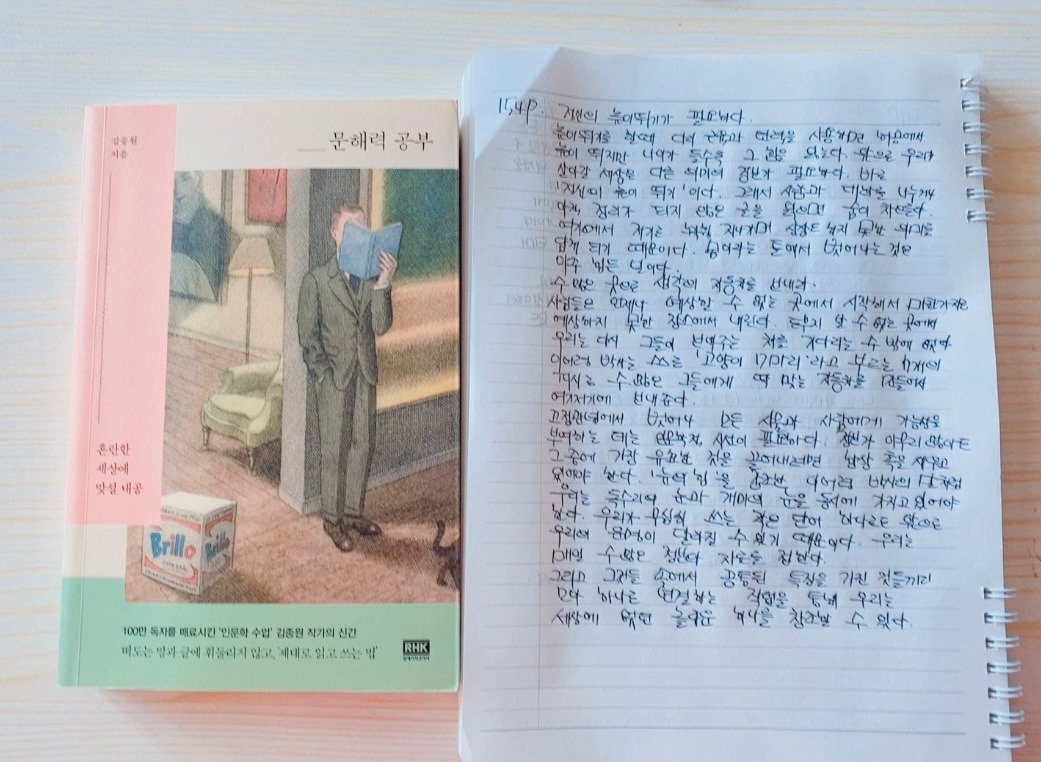 김종원
지음
문해력 공부
혼란한
세상에
맞설 내공
Brillo
Brillo
100만 독자를 매료시킨 '인문학 수업' 김종원 작가의 신간
떠도는 말과 글에 휘둘리지 않고, '제대로 읽고 쓰는 법'
RHK
154p. 정신의 높이뛰기가 필요하다.
높이뛰기를 할 때 다리 근육과 탄력을 사용하면 처음에서
높이 뛰지만 나이가 들수록 그 힘을 잃는다. 앞으로 우리가
살아갈 세상은 다른 의미의 점프가 필요하다. 바로
'정신의 높이 뛰기'이다. 그래서 사람과 대화를 나누거나
아직 정리가 되지 않은 글을 읽으면 숨이 차오른다.
여기에서 저기로 뛰어 지나가며 상상도 하지 못한 의미를
알게 되기 때문이다. 날아가는 틀에서 벗어나는 것은
아주 힘든 일이다.
수많은 곳으로 생각의 자동차를 보내라.
사람들은 언제나 예상할 수 없는 곳에서 시작해서 마찬가지로
예상하지 못한 장소에서 내린다. 듣우지 알 수 없는 곳에서
우리는 다시 그들이 보내주는 차를 기다리는 수 밖에 없다
이어령 박사는 스스로 '고양이 17마리'라고 부르는 7개의
수많은 그들에게 딱 맞는 자동차를
여기저기에 보내준다.
고정관념에서 벗어나 모든 사물과 사람에게 가능성을
부여하는 데는 인문학적 시선이 필요하다. 정보가 아무리 많아도
그 중에 가장 유용한 것을 끌어내려면 항상 촉을 세우고
있어야 한다. '눈의 힘'을 강조한 이어령 박사의 말처럼
우리는 독수리의 눈과 개미의 눈을 동시에 가지고 있어야
한다. 우리가 무심히 쓰는 작은 단어 하나로도 앞으로
우리의 인생이 달라질 수 있기 때문이다. 우리는
매일 수많은 정보와 자료를 접한다.
그리고 그것들 속에서 공통된 특징을 가진 것들끼리
모아 하나로 연결하는 작업을 통해 우리는
세상에 없던 놀라운 하나를 창조할 수 있다.